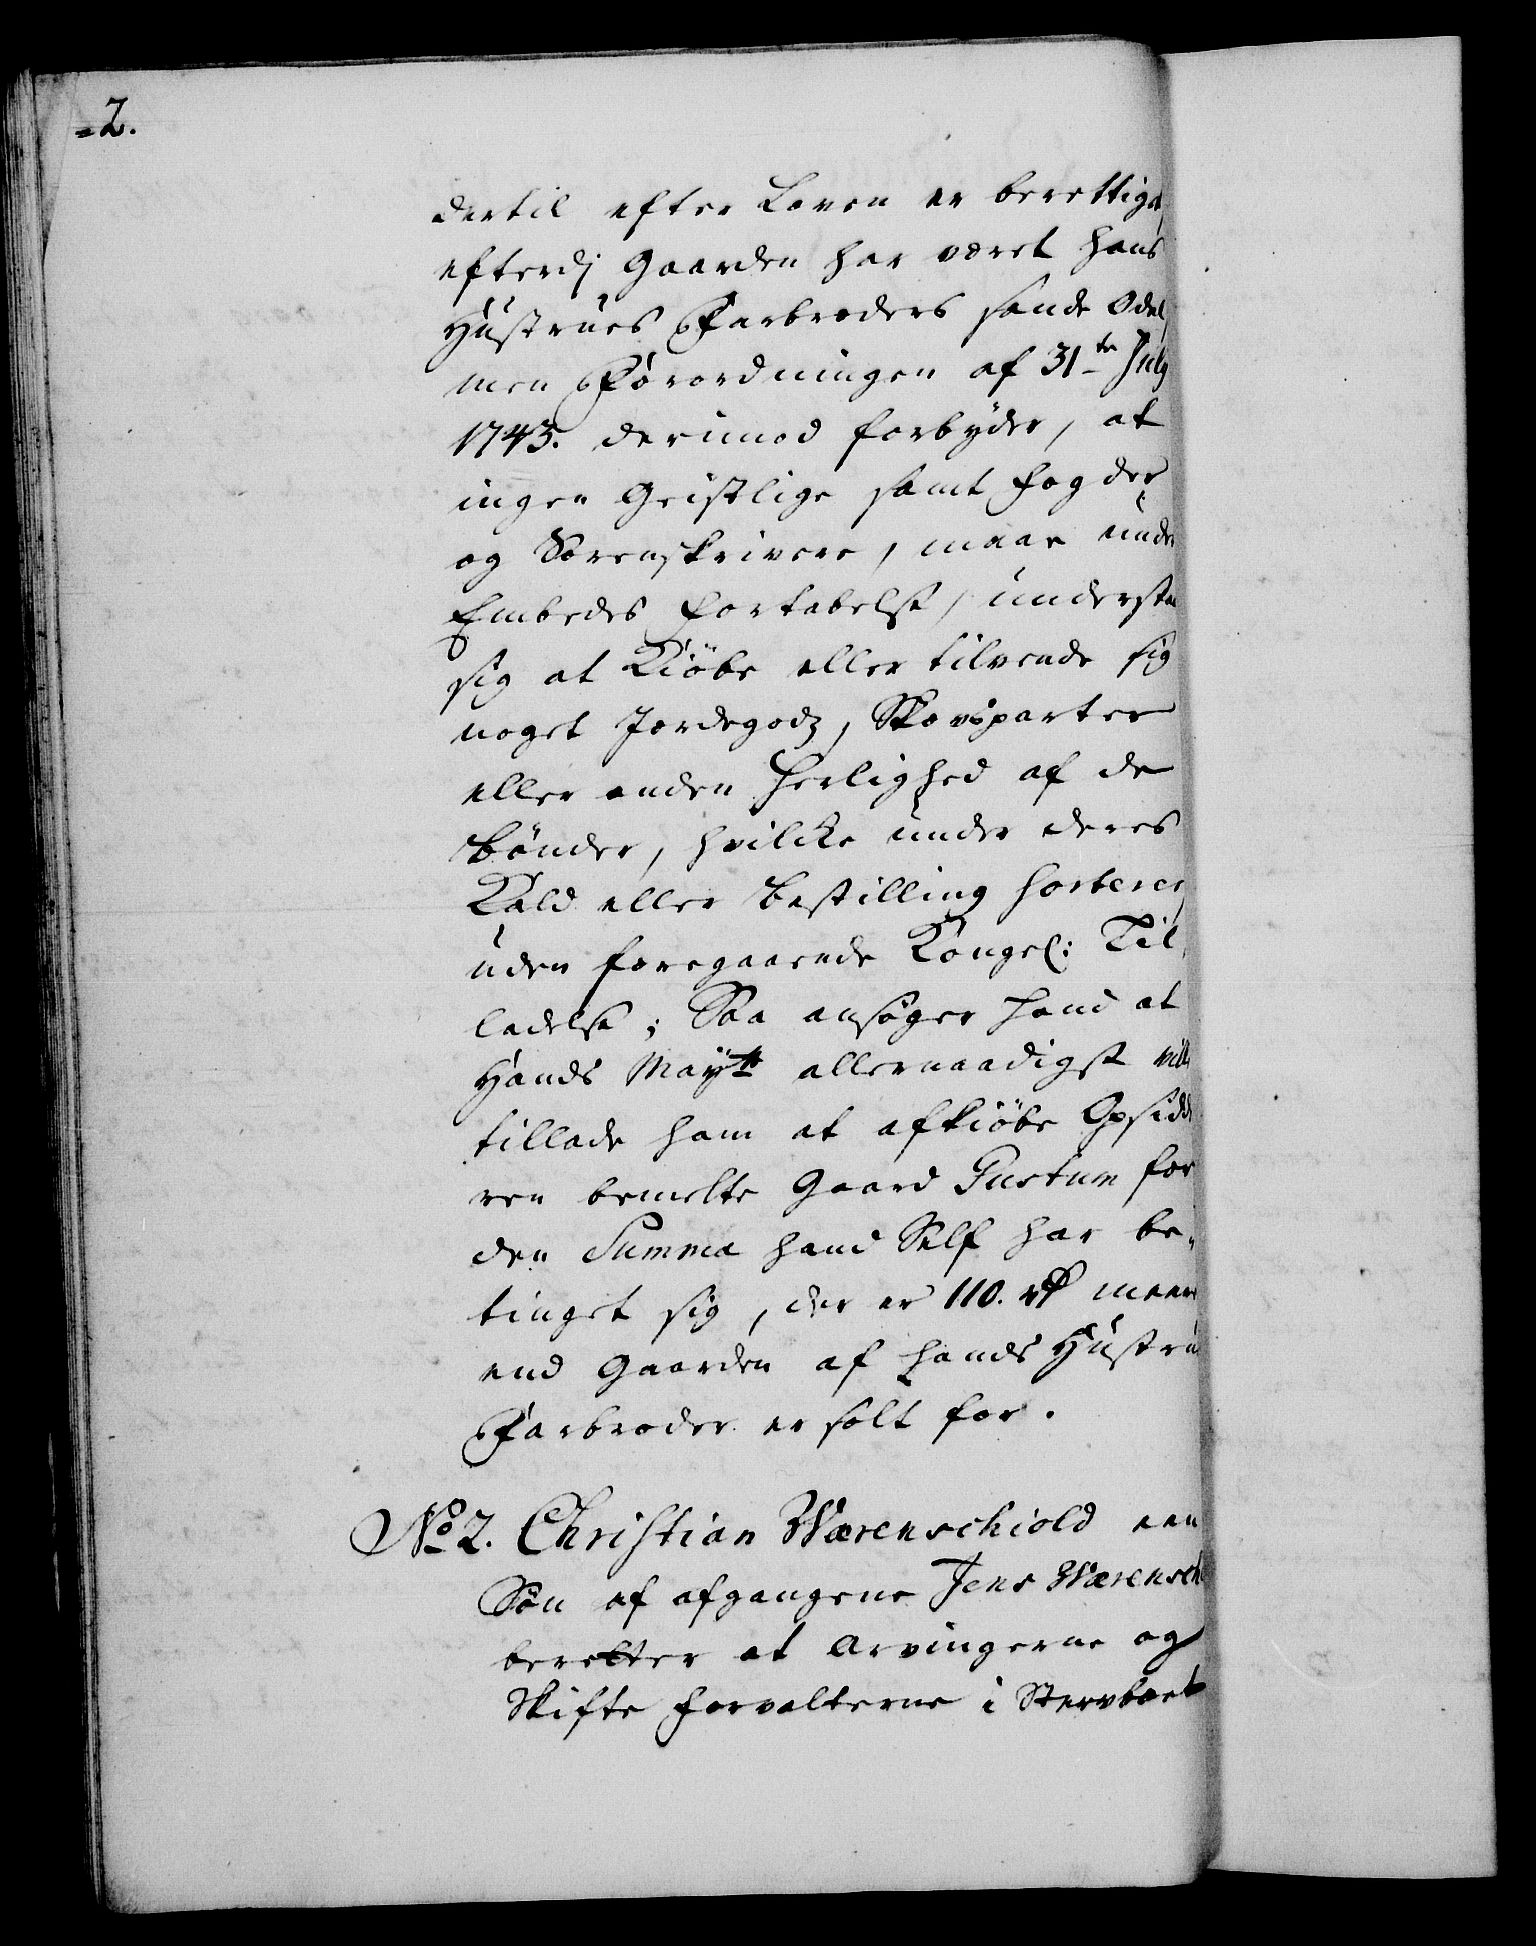 2.
dertil efter Loven er berettiget,
efterdj Gaarden har været hans
Hustrues Farbroders sande Odel,
men Forordningen af 31te July
1743. derimod forbyder, at
ingen Geistlige samt Fogder
og Sorenskrivere, maae under
Embedes Fortabelse, understaa
sig at Kiöbe eller tilvende sig
noget Jordegodz, Skovsparter
eller anden Herlighed af de
Bönder, hvilcke under deres
Kald eller Bestilling sorterer,
uden foregaaende Kongel: Til,
ladelse; Saa ansøger Hand at
Hands Maytt allernaadigst vilde
tillade ham at afkiöbe Opsidde
ren bemelte Gaard Pustum for
den Summa hand Self har be,
tinget sig, der er 110. rd meere
end Gaarden af hands Hustrues
Farbroder er solt for.
No 2. Christian Wærenschiold een
Sön af afgangene Jens Wærensch
beretter at Arvingerne og
Skifte Forvalterne i Stervboet